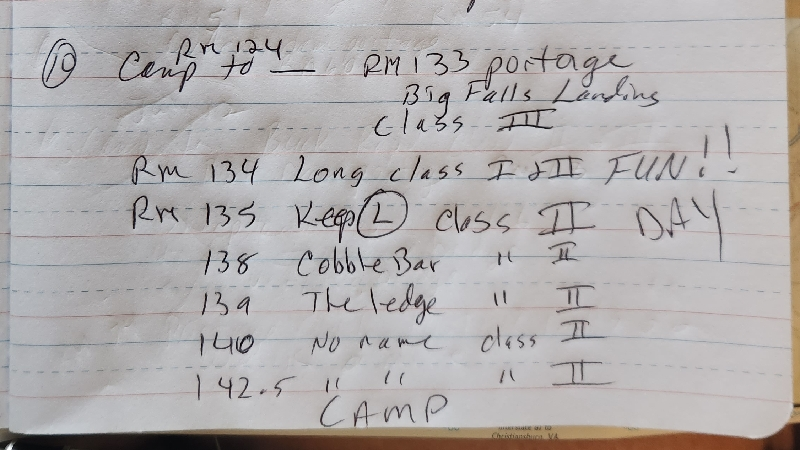 ⑩ Camp Rm 124 to — RM 133 portage
Big Falls Landing
Class III
Rm 134 Long class I & II FUN!!
Rm 135 Keep Ⓛ class II DAY
138 Cobble Bar " II
139 The ledge " II
140 No name class II
142.5 " " " II
CAMP
Christiansburg, VA